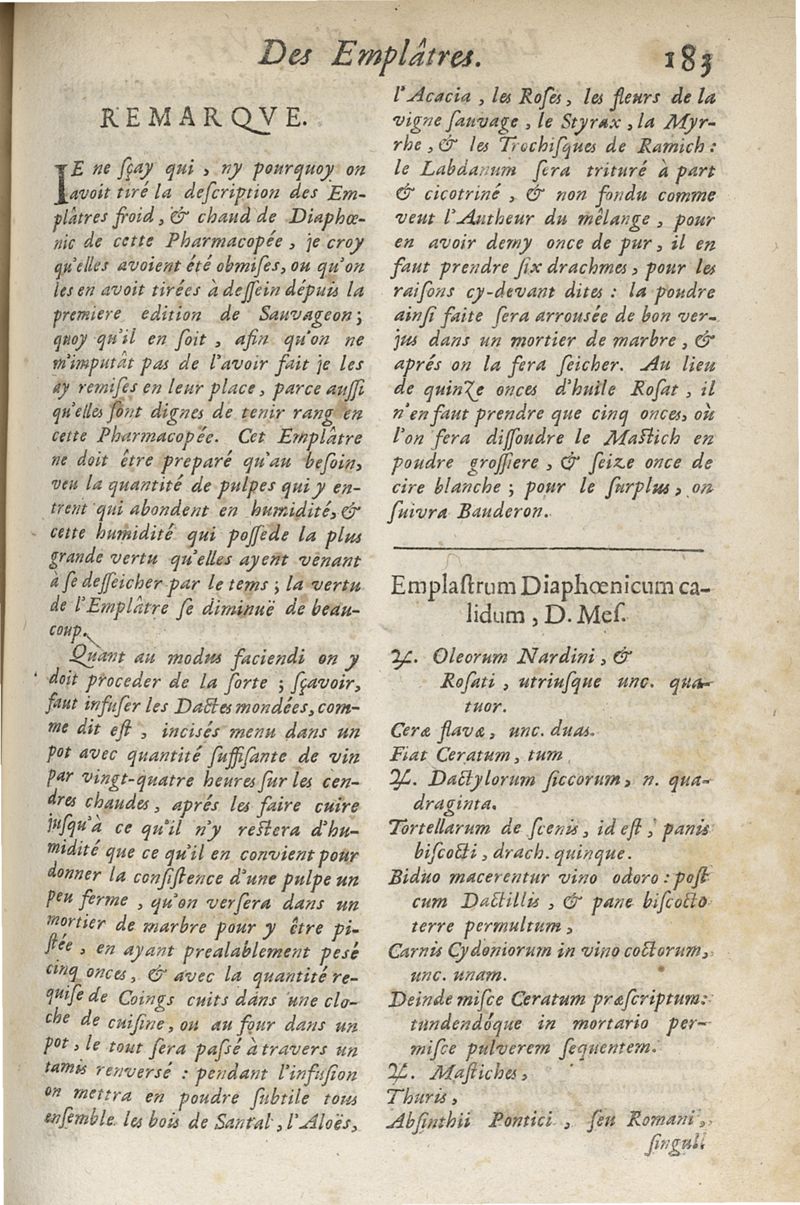 Des Emplâtres. 183
REMARQVE.
IE ne ſçay qui, ny pourquoy on
avoit tiré la deſcription des Em-
plâtres froid, & chaud de Diaphœ-
nic de cette Pharmacopée, je croy
qu'elles avoient été obmiſes, ou qu'on
les en avoit tirées à deſſein dépuis la
premiere edition de Sauvageon;
quoy qu'il en ſoit, afin qu'on ne
m'imputât pas de l'avoir fait je les
ay remiſes en leur place, parce auſſi
qu'elles ſont dignes de tenir rang en
cette Pharmacopée. Cet Emplâtre
ne doit être preparé qu'au beſoin,
veu la quantité de pulpes qui y en-
trent qui abondent en humidité, &
cette humidité qui poſſede la plus
grande vertu qu'elles ayent venant
à ſe deſſeicher par le tems; la vertu
de l'Emplâtre ſe diminuë de beau-
coup.
Quant au modus faciendi on y
doit proceder de la ſorte; ſçavoir,
faut infuſer les Dactes mondées, com-
me dit eſt, incisés menu dans un
pot avec quantité ſuffiſante de vin
par vingt-quatre heures ſur les cen-
dres chaudes, aprés les faire cuire
juſqu'à ce qu'il n'y reſtera d'hu-
midité que ce qu'il en convient pour
donner la conſiſtence d'une pulpe un
peu ferme, qu'on verſera dans un
mortier de marbre pour y être pi-
ſtée, en ayant prealablement pesé
cinq onces, & avec la quantité re-
quiſe de Coings cuits dans une clo-
che de cuiſine, ou au four dans un
pot, le tout ſera paſsé à travers un
tamis renversé : pendant l'infuſion
on mettra en poudre ſubtile tous
enſemble les bois de Santal, l'Aloës,
l'Acacia, les Roſes, les fleurs de la
vigne ſauvage, le Styrax, la Myr-
rhe, & les Trochiſques de Ramich :
le Labdanum ſera trituré à part
& cicotriné, & non fondu comme
veut l'Autheur du mêlange, pour
en avoir demy once de pur, il en
faut prendre ſix drachmes, pour les
raiſons cy-devant dites : la poudre
ainſi faite ſera arrousée de bon ver-
jus dans un mortier de marbre, &
aprés on la fera ſeicher. Au lieu
de quinze onces d'huile Roſat, il
n'en faut prendre que cinq onces, où
l'on fera diſſoudre le Maſtich en
poudre groſſiere, & ſeize once de
cire blanche; pour le ſurplus, on
ſuivra Bauderon.
Emplaſtrum Diaphœnicum ca-
lidum, D. Meſ.
℞. Oleorum Nardini, &
Roſati, utriuſque unc. qua-
tuor.
Ceræ flavæ, unc. duas.
Fiat Ceratum, tum
℞. Dactylorum ſiccorum, n. qua-
draginta.
Tortellarum de ſcenis, id eſt, panis
biſcocti, drach. quinque.
Biduo macerentur vino odoro : poſt
cum Dactillis, & pane biſcocto
terre permultum,
Carnis Cydoniorum in vino coctorum,
unc. unam.
Deinde miſce Ceratum præſcriptum:
tundendóque in mortario per-
miſce pulverem ſequentem.
℞. Maſtiches,
Thuris,
Abſinthii Pontici, ſeu Romani,
ſingul